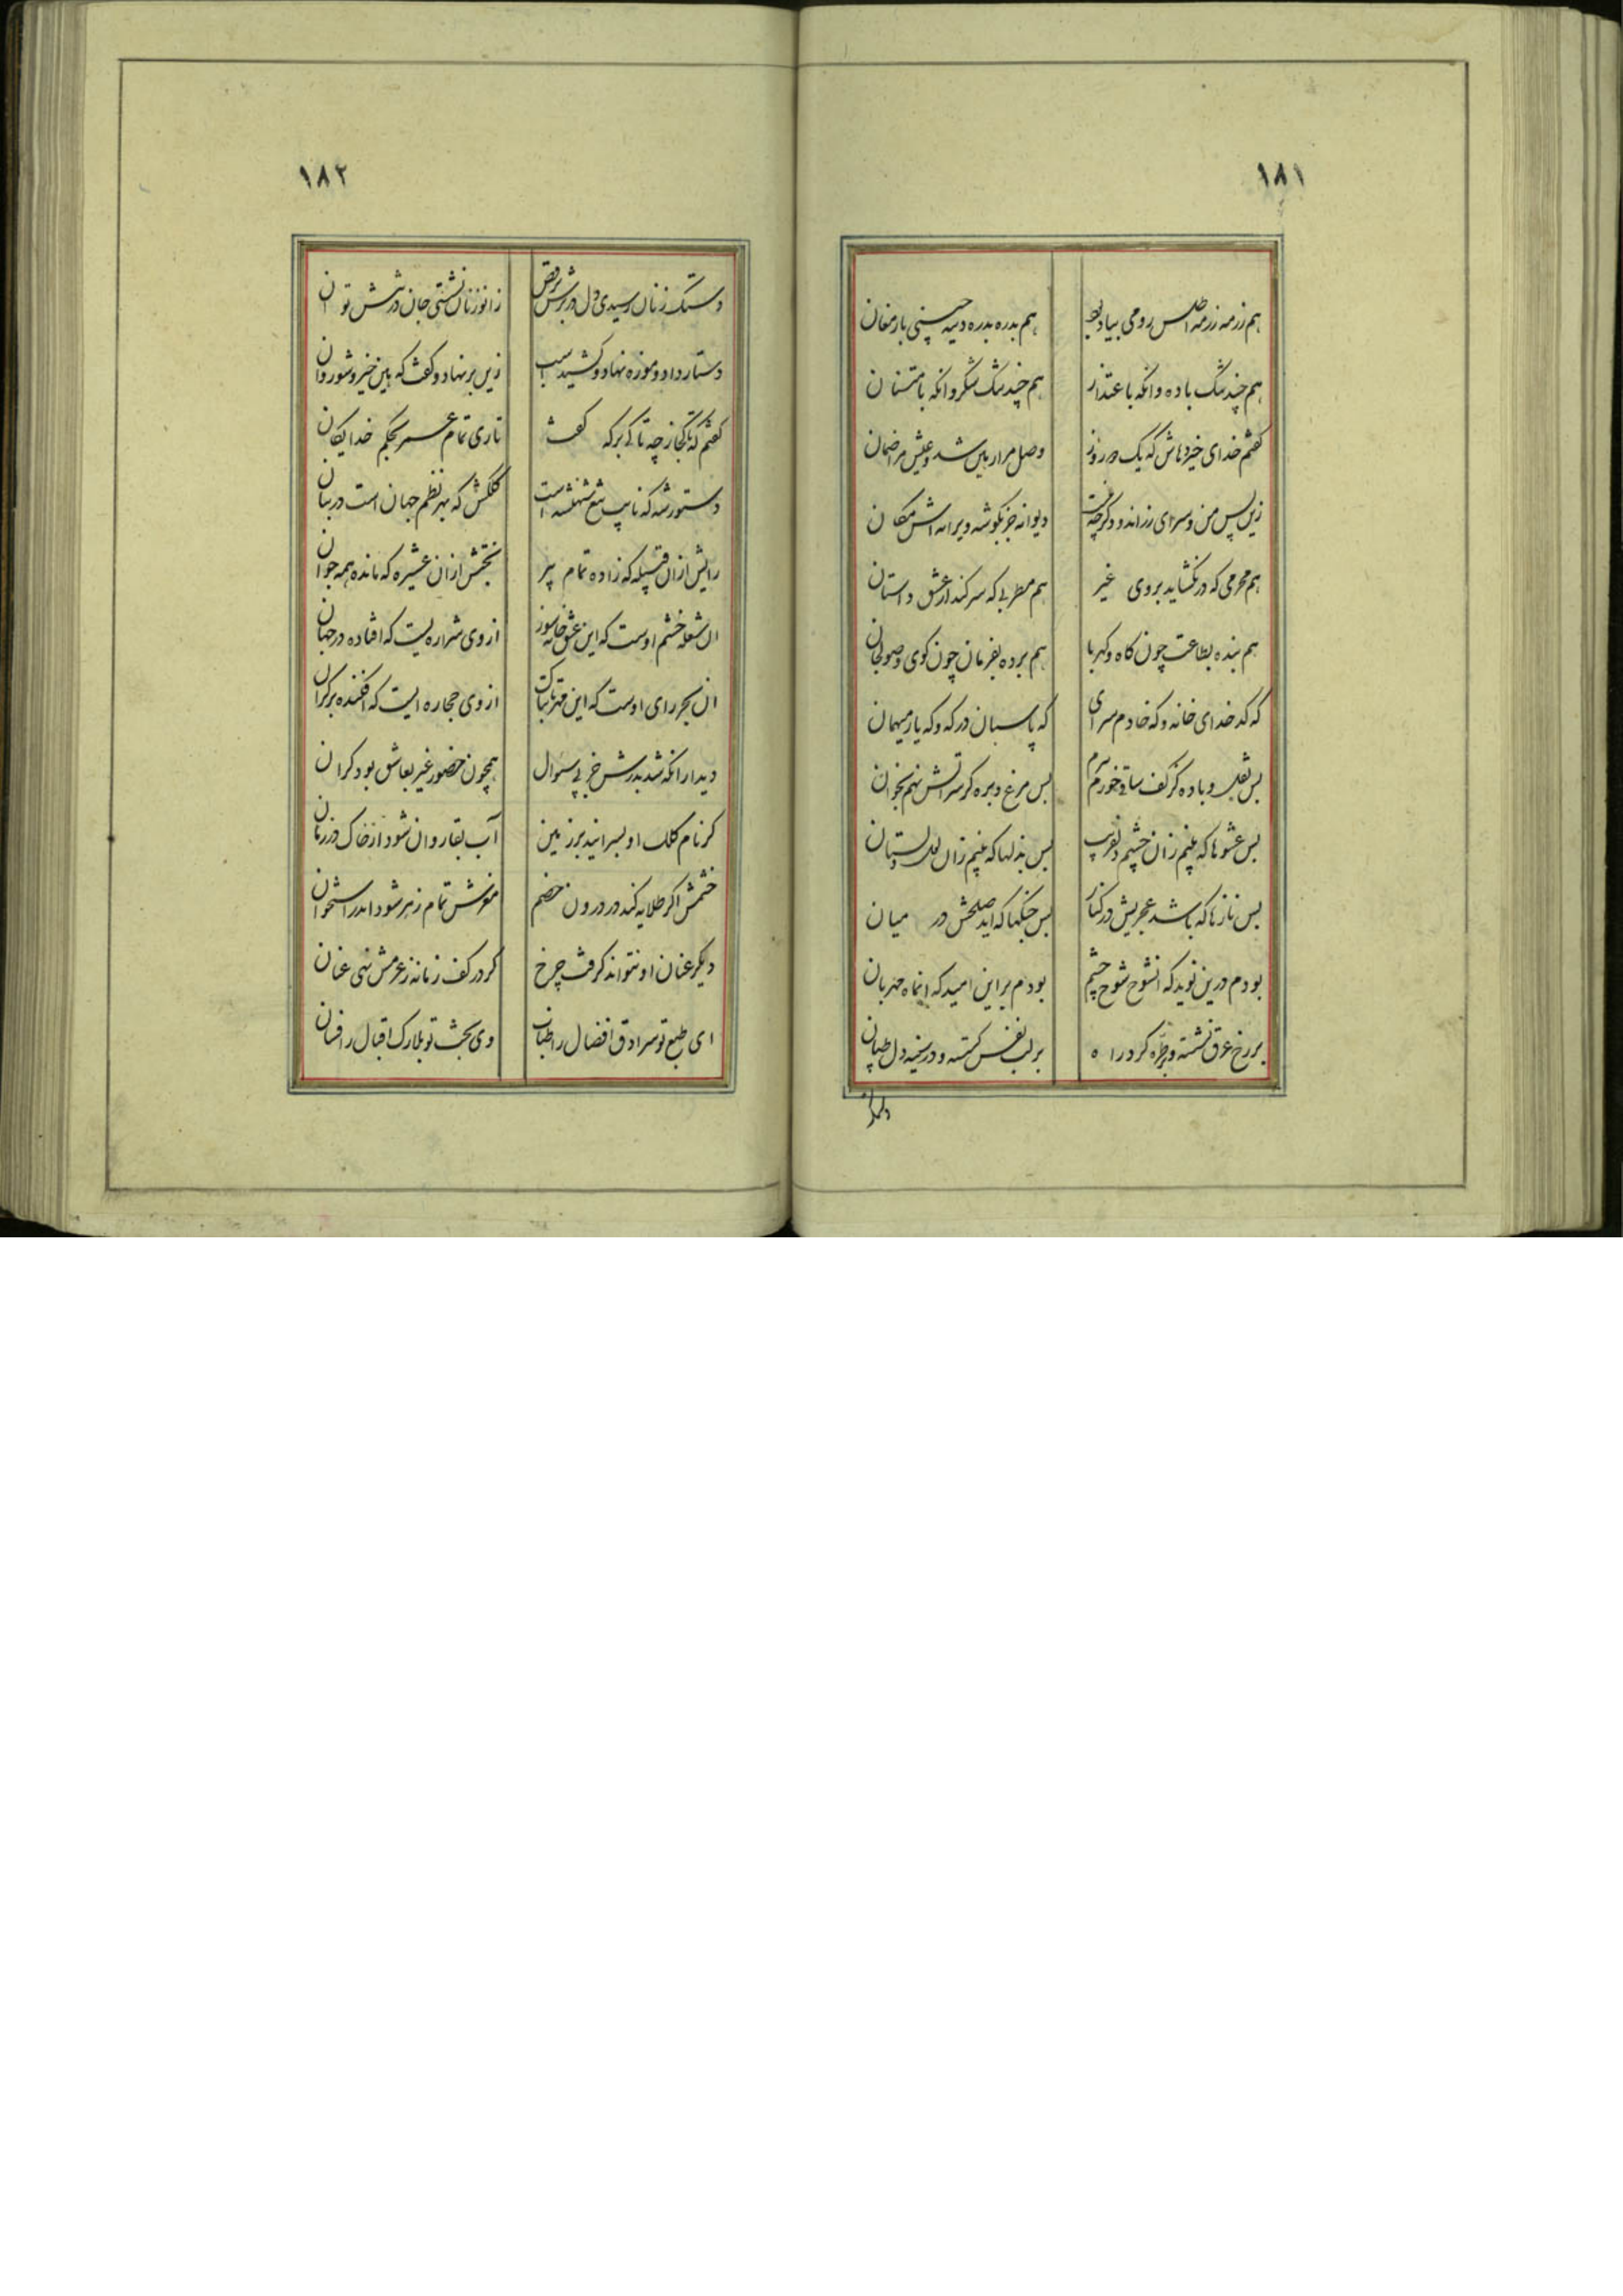 ١٨١
هم رزمه رزمه اطلس رومی بیادبود هم بدره بدره دیبه چینی بارمغان
هم چند تنگ باده وانکه باعتذار هم چند تنگ شکر وانکه بامتنان
کفتم خدای خیر دهاش که یک دو روز وصل مرا رهین شد و عیش مرا ضمان
زین پس من و سرای زراندود کرچه دیوانه جز بکوشه ویرانه اش مکان
هم محرمی که در نکشاید بروی غیر هم مطربی که سر کند از عشق داستان
هم بنده بطاعت چون کاه و کهربا هم برده بفرمان چون کوی و صولجان
که کدخدای خانه و که خادم سرای که پاسبان درکه و که یار میهمان
بس نقل و باده کز کف ساقی خورم بس مرغ و بره کز سر آتش نهم بخوان
بس عشوها که بینم زان چشم دلفریب بس بذلها که بینم زان لعل دلستان
بس نازها که باشد عجزیش در کنار بس جنکها که آید صلحش در میان
بودم درین نوید که انشوخ شوخ چشم بودم براین امید که انماه مهربان
بر رخ عرق نشسته و بر طره کرد راه بر لب نفس کسسته و در سینه دل طپان
١٨٢
دستک زنان رسیدی دل در برش برقص زانو زنان نشستی جان در تنش توان
دستار داد و موزه نهاد و کشید اسب زین بر نهاد و کفت که هین خیز و شو روان
کفتم که تا کجا ز چه تا کی بر که کفت تا ری تمام عمر بحکم خدایکان
دستور شه که نایب تیغ شهنشه است کلکش که بهر نظم جهان است در بنان
رایش ازان قبیله که زاده تمام پیر بختش ازان عشیره که مانده همه جوان
ان شعله خشم اوست که این عشق خانه سوز از وی شراره یست که افتاده در جهان
ان بحر رای اوست که این مهر تابناک از وی حجاره ایست که افکنده بر کران
دیدار انکه شد بدرش جز پی سئوال همچون حضور غیر بعاشق بود کران
کر نام کلک او بسرانید بر زمین آب بقا روان شود از خاک در زمان
خشمش اکر طلایه کند در درون خصم مغزش تمام زهر شود اندر استخوان
دیکر عنان او نتواند کرفت چرخ کر در کف زمانه ز عزمش نهی عنان
ای طبع تو سرادق افضال را طناب وی بخت تو بلارک اقبال را فسان